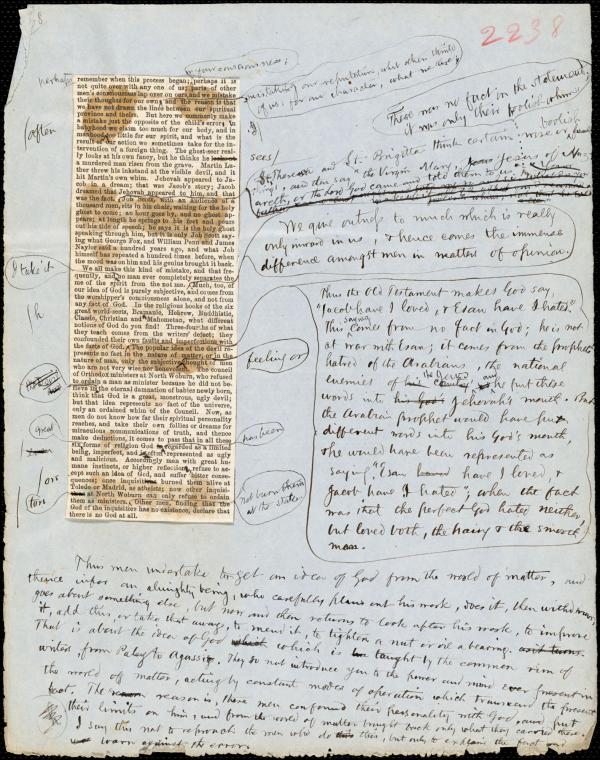 2238
in our consciousness;
mistaking our reputation, what others think
of us, for our character, what we are;
There was no fact in the statement;
it was only their foolish whim
perhaps
often
sees/
I take it
h
Great
/ors
tors
feeling or
has been
not burn them
at the stake
remember when this process began; perhaps it is
not quite over with any one of us; parts of other
men's consciousness lap over on ours, and we mistake
their thoughts for our own; and the reason is that
we have not drawn the lines between our spiritual
province and theirs. But here we commonly make
a mistake just the opposite of the child's error; in
babyhood we claim too much for our body, and in
manhood too little for our spirit, and what is the
result of our action we sometimes take for the in-
tervention of a foreign thing. The ghost-seer real-
ly looks at his own fancy, but he thinks he
a murdered man risen from the grave. Martin Lu-
ther threw his inkstand at the visible devil, and it
hit Martin's own whim. Jehovah appeared to Ja-
cob in a dream; that was Jacob's story; Jacob
dreamed that Jehovah appeared to him, and that
was the fact. Job Scott, with an audience of a
thousand men, sits in his chair, waiting for the holy
ghost to come; an hour goes by, and no ghost ap-
pears; at length he springs to his feet and pours
out his tide of speech; he says it is the holy ghost
speaking through him, but it is only Job Scott say-
ing what George Fox, and William Penn and James
Naylor said a hundred years ago, and what Job
himself has repeated a hundred times before, when
the mood was on him and his genius brought it back.
We all make this kind of mistake, and that fre-
quently, and no man ever completely separates the
me of the spirit from the not me. Much, too, of
our idea of God is purely subjective, and comes from
the worshipper's consciousness alone, and not from
any fact of God. In the religious books of the six
great world-sects, Bramanic, Hebrew, Buddhistic,
Classic, Christian and Mahometan, what different
notions of God do you find! Three-fourths of what
they teach comes from the writers' defect; they
confounded their own faults and imperfections with
the facts of God. The popular idea of the devil re-
presents no fact in the nature of matter, or in the
nature of man, only the subjective thought of men
who are not very wise nor benevolent. The council
of Orthodox ministers at North Woburn, who refused
to ordain a man as minister because he did not be-
lieve in the eternal damnation of babies newly born,
think that God is a great, monstrous, ugly devil;
but that idea represents no fact of the universe,
only an ordained whim of the Council. Now, as
men do not know how far their spiritual personality
reaches, and take their own follies or dreams for
miraculous communications of truth, and thence
make deductions, it comes to pass that in all these
six forms of religion God is regarded as a limited
being, imperfect, and is often represented as ugly
and malicious. Accordingly men with great hu-
mane instincts, or higher reflection, refuse to ac-
cept such an idea of God, and suffer bitter conse-
quences; once inquisitors burned them alive at
Toledo or Madrid, as atheists; now other inquisi-
at North Woburn can only refuse to ordain
them as ministers. Other men, finding that the
God of the inquisitor has no existence, declare that
there is no God at all.
St. Theresa and St. Brigitta think certain wise or foolish
things, and then say "the Virgin Mary, Jesus of Na-
zareth, or the Lord God came and told them to us;
We give outwardly to much which is really
only inward in us, & hence comes the immense
difference amongst men in matters of opinion.
Thus the Old Testament makes God say,
"Jacob have I loved, & Esau have I hated."
This saying comes from no fact in God; he is not
at war with Esau; it comes from the prophet's
hatred of the Arabians, the national
enemies of the Jews; and he put these
words into Jehovah's mouth. But
the Arabian prophet would have put
different words into his God's mouth,
& he would have been represented as
saying "Esau have I loved &
Jacob have I hated"; when the fact
was that the perfect God hated neither,
but loved both, the hairy & the smooth
man.
Thus men undertake to get an idea of God from the world of matter, and
thence infer an almighty being, who carefully plans out his work, does it, then withdraws,
goes about something else, but now and then returns to look after his work, to improve
it, add this, or take that away, to mend it, to tighten a nut or oil a bearing.
That is about the idea of God which is taught by the common run of
writers from Paley to Agassiz. They do not introduce you to the power and mind ever present in
the world of matter, acting by constant modes of operation which transcend the present
fact. The reason is, these men confound their personality with God, and put
their limits on him, and from the world of matter brought back only what they carried there.
I say this not to reproach the men who do this, but only to explain the fact and
warn against the error.